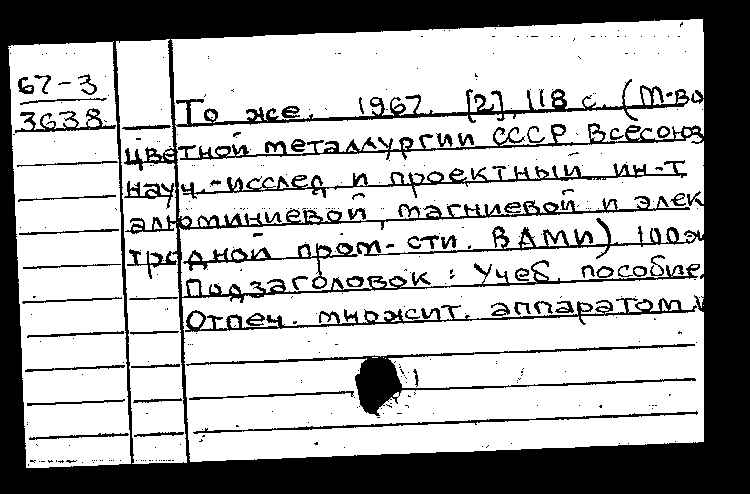 67-3
3638
То же. 1967. [2], 118 с. (М-во
цветной металлургии СССР. Всесоюз
науч.-исслед. и проектный ин-т
алюминиевой, магниевой и элек
тродной пром-сти. ВАМИ) 100 э
Подзаголовок: Учеб. пособие.
Отпеч. множит. аппаратом.